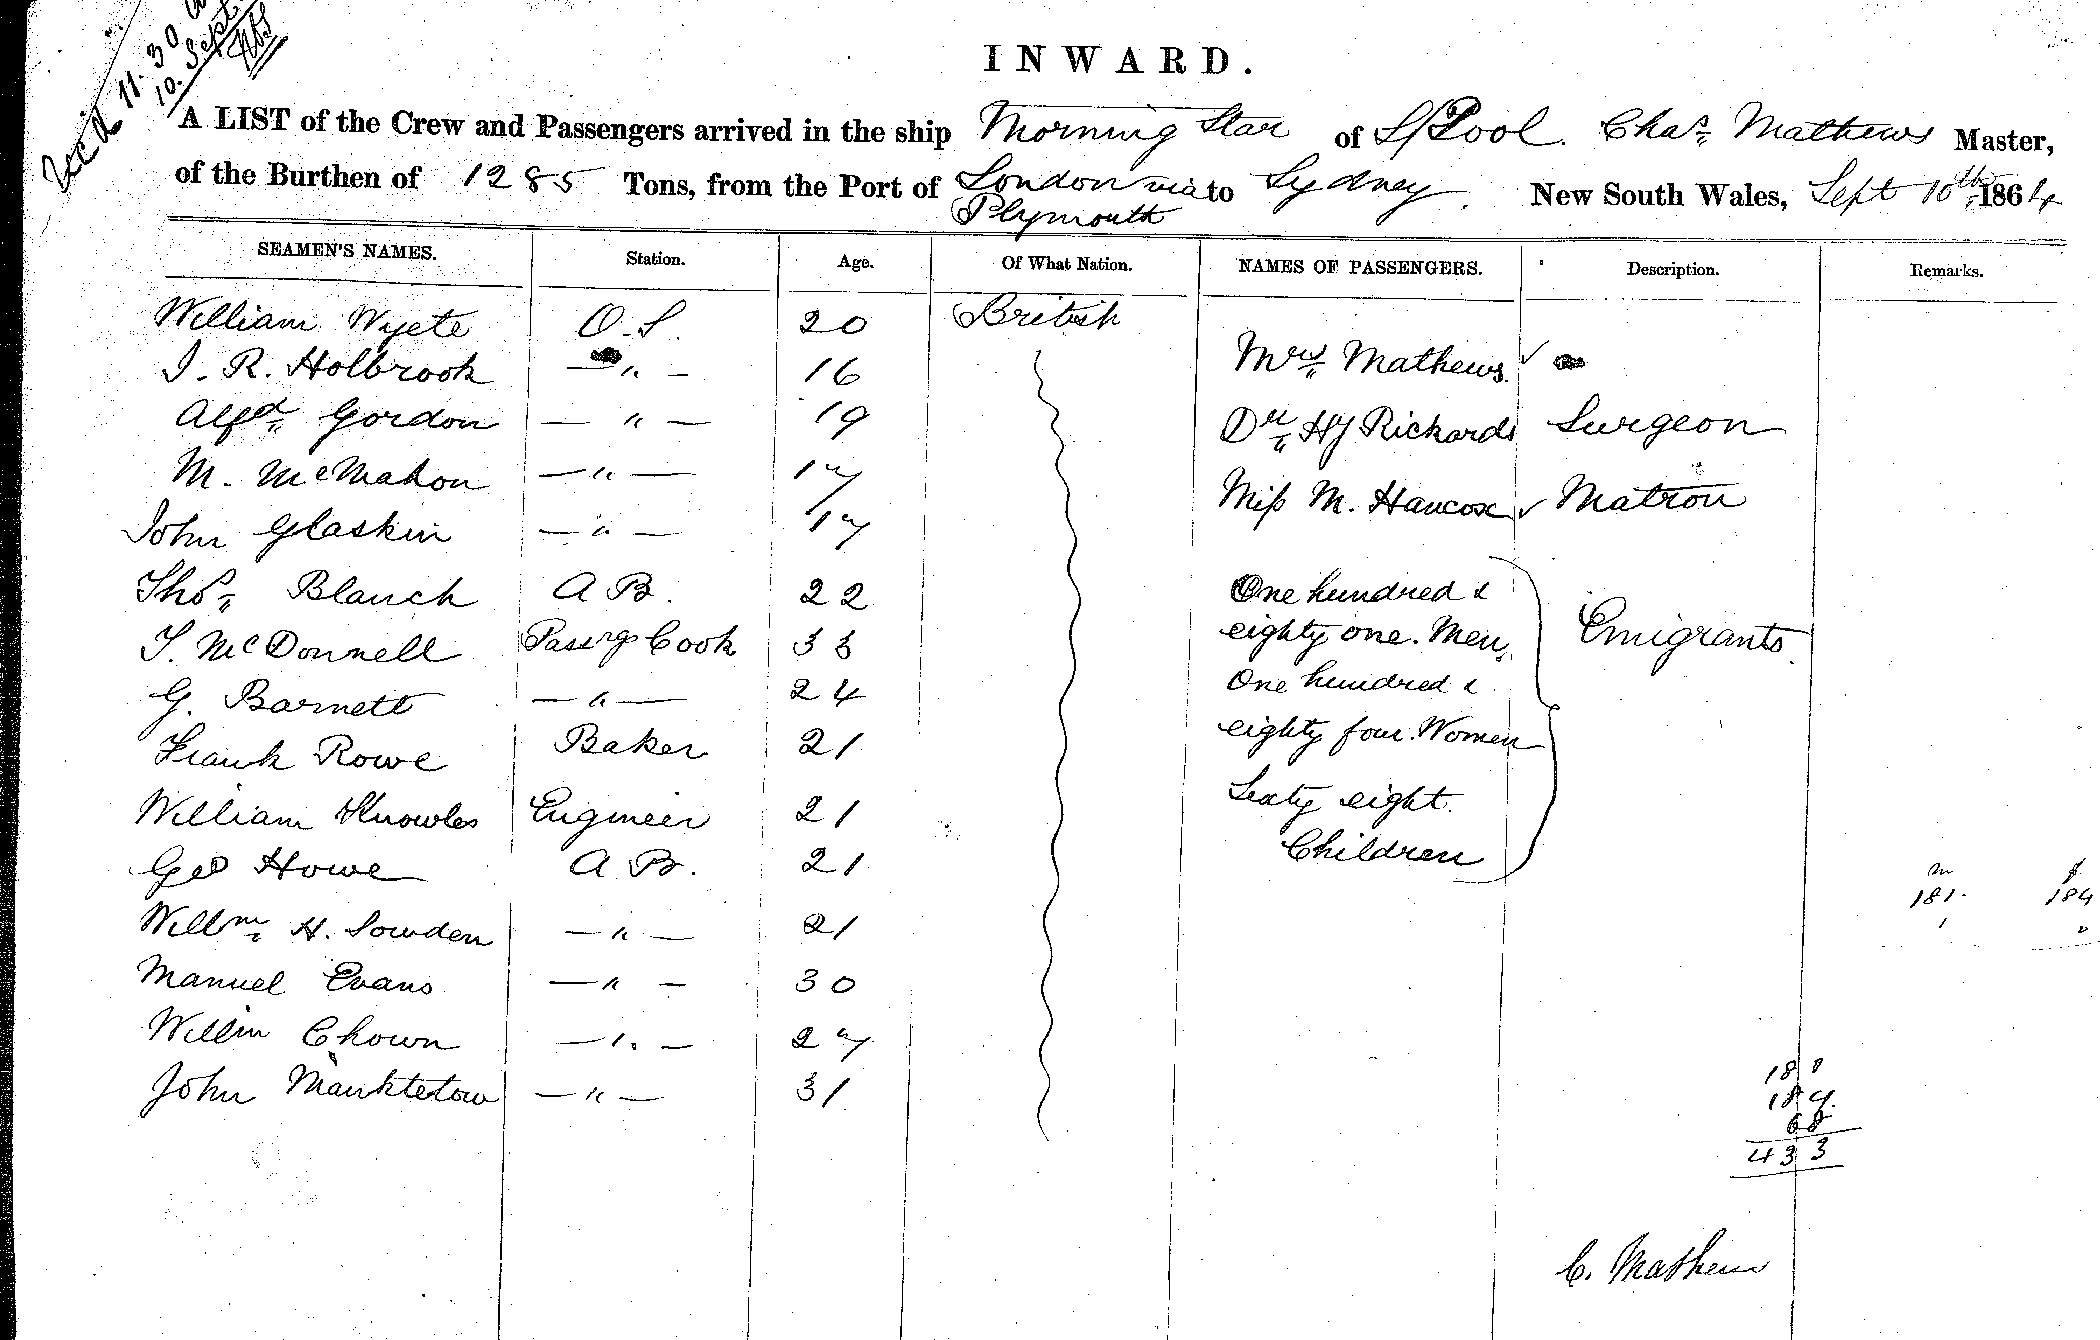 Rec'd 11.30
10. Sept
INWARD.
A LIST of the Crew and Passengers arrived in the ship Morning Star of L/Pool. Chas. Mathews Master,
of the Burthen of 1285 Tons, from the Port of London via to Sydney. New South Wales, Sept 10th 1864
Plymouth
SEAMEN'S NAMES. Station. Age. Of What Nation. NAMES OF PASSENGERS. Description. Remarks.
William Wyete O.S. 20 British
J. R. Holbrook — " — 16 Mrs Mathews ✓
Alfd Gordon — " — 19 Dr HJ Rickards Surgeon
M. McMahon — " — 17 Miss M. Hancox ✓ Matron
John Glaskin — " — 17
Thos Blanch A B. 22 One hundred &
T. McDonnell Passrgs Cook 33 eighty one. Men, Emigrants.
G. Barnett — " — 24 One hundred &
Frank Rowe Baker 21 eighty four. Women
William Knowles Engineer 21 Sixty eight.
Geo Howe A B. 21 Children
m f
181. 184
1
Willm H. Sowden — " — 21
Manuel Evans — " — 30
Willm Chown — " — 27
John Manktetow — " — 31
181
184
68
433
C. Mathews